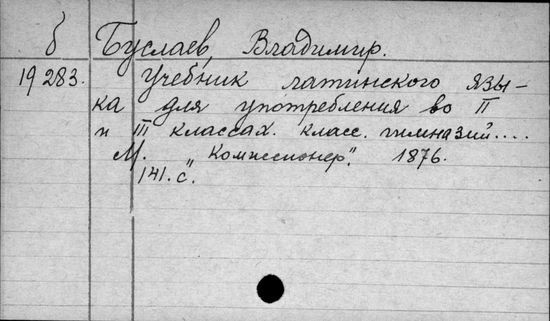 б Буслаев, Владимир.
19283. Учебник латинского язы-
ка для употребления во II
и III классах. класс. гимназий....
М. „Комиссионер". 1876.
141. с.